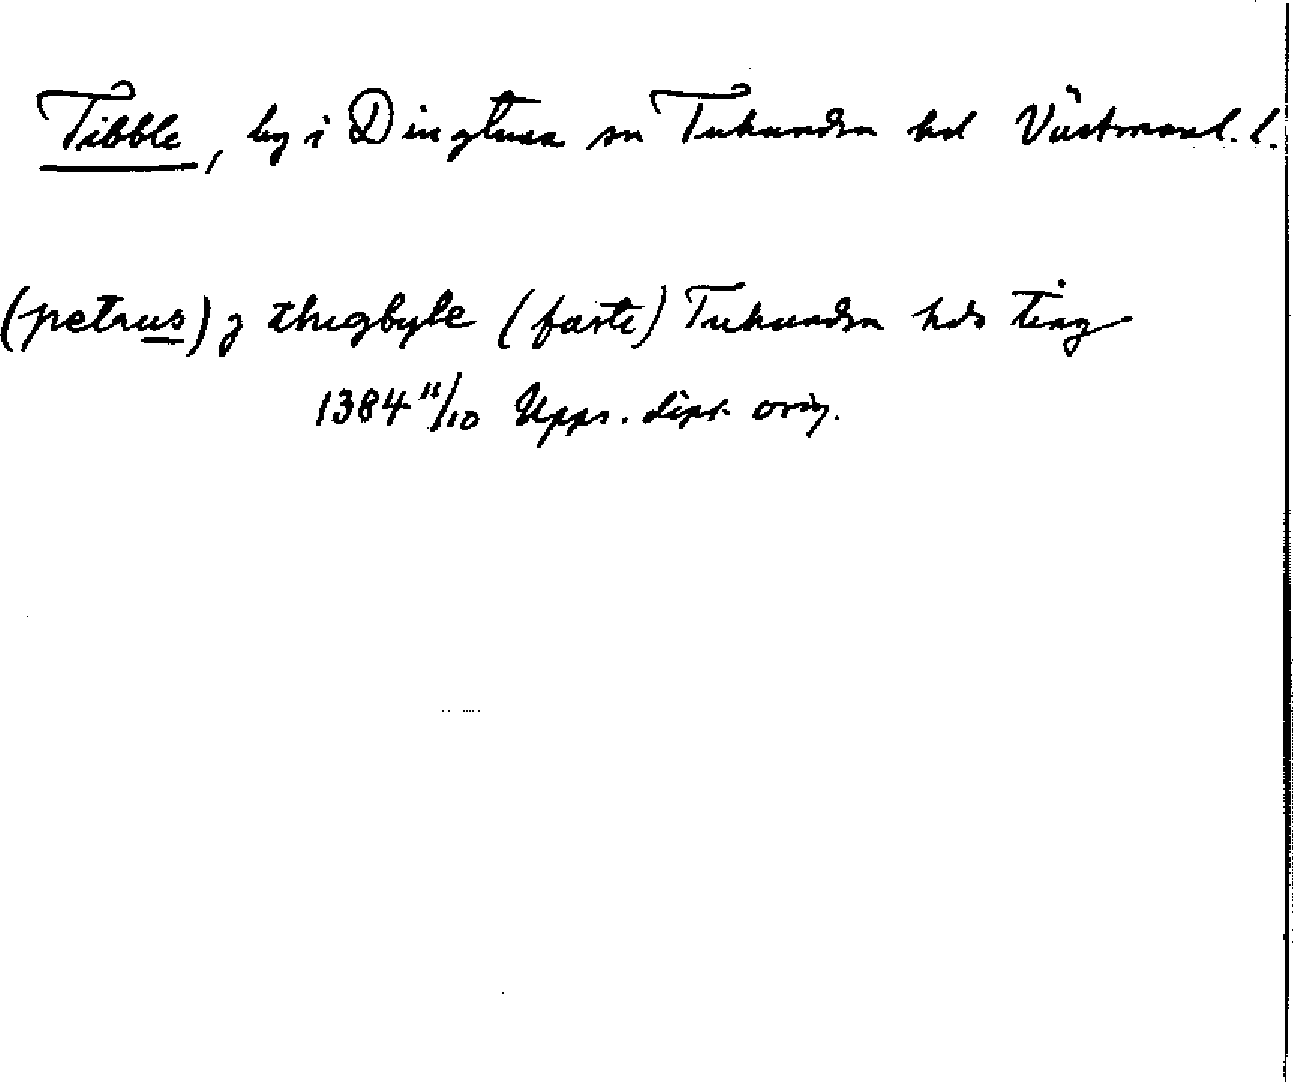 Tibble, by i Dingtuna sn Tuhundra hd Västmanl. l.
(petrus) j thigbyle (faste) Tuhundra hds ting
1384 11/10 Upps. dipl. orig.